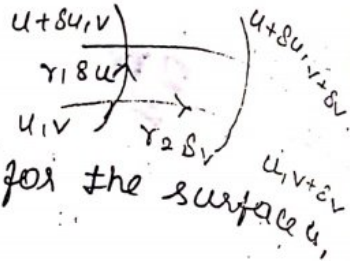 u+δu,v
u+δu,v+δv
r₁δu
u,v
r₂δv
u,v+δv
for the surface